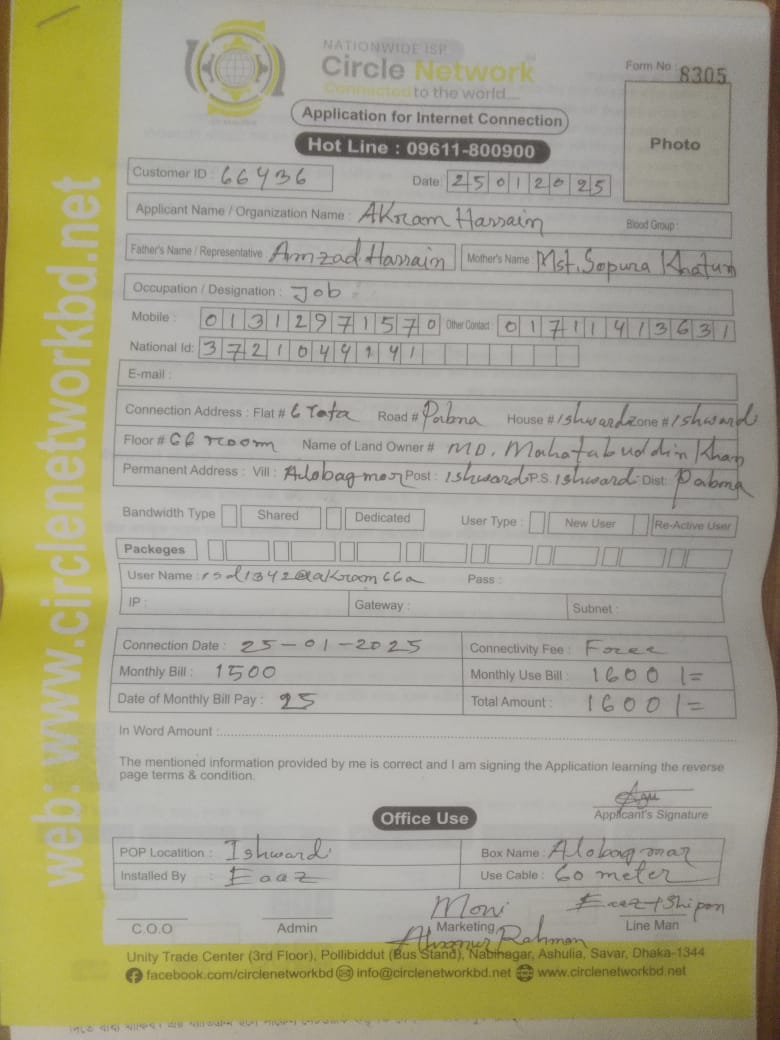 NATIONWIDE ISP
Circle Network
Connected to the world....
Form No : 8305
Application for Internet Connection
Hot Line : 09611-800900
Photo
Customer ID : 66436
Date: 25012025
Applicant Name / Organization Name : AKram Hassain
Blood Group :
Father's Name / Representative : Amzad Hassain Mother's Name Mst. Sopura Khatun
Occupation / Designation : Job
Mobile : 01312971570 Other Contact : 01711413631
National Id: 3721049141
E-mail :
Connection Address : Flat # 6 Tata Road # Pabna House # Ishwardi Zone # Ishward
Floor # 66 room Name of Land Owner # MD. Mahatabuddin Khan
Permanent Address : Vill : Alobagmor Post : Ishwardi P.S. Ishwardi Dist: Pabma
Bandwidth Type Shared Dedicated User Type : New User Re-Active User
Packeges
User Name : isd1342@akram66a Pass :
IP : Gateway : Subnet :
Connection Date : 25-01-2025 Connectivity Fee : Free
Monthly Bill : 1500 Monthly Use Bill : 1600/=
Date of Monthly Bill Pay : 25 Total Amount : 1600/=
In Word Amount :
The mentioned information provided by me is correct and I am signing the Application learning the reverse
page terms & condition.
Applicant's Signature
Office Use
POP Locatition : Ishwardi Box Name : Alobag mor
Installed By : Eaaz Use Cable : 60 meter
Moni Eaaz + Shipon
C.O.O Admin Marketing Line Man
Rahman
Unity Trade Center (3rd Floor), Pollibiddut (Bus Stand), Nabinagar, Ashulia, Savar, Dhaka-1344
facebook.com/circlenetworkbd info@circlenetworkbd.net www.circlenetworkbd.net
web: www.circlenetworkbd.net